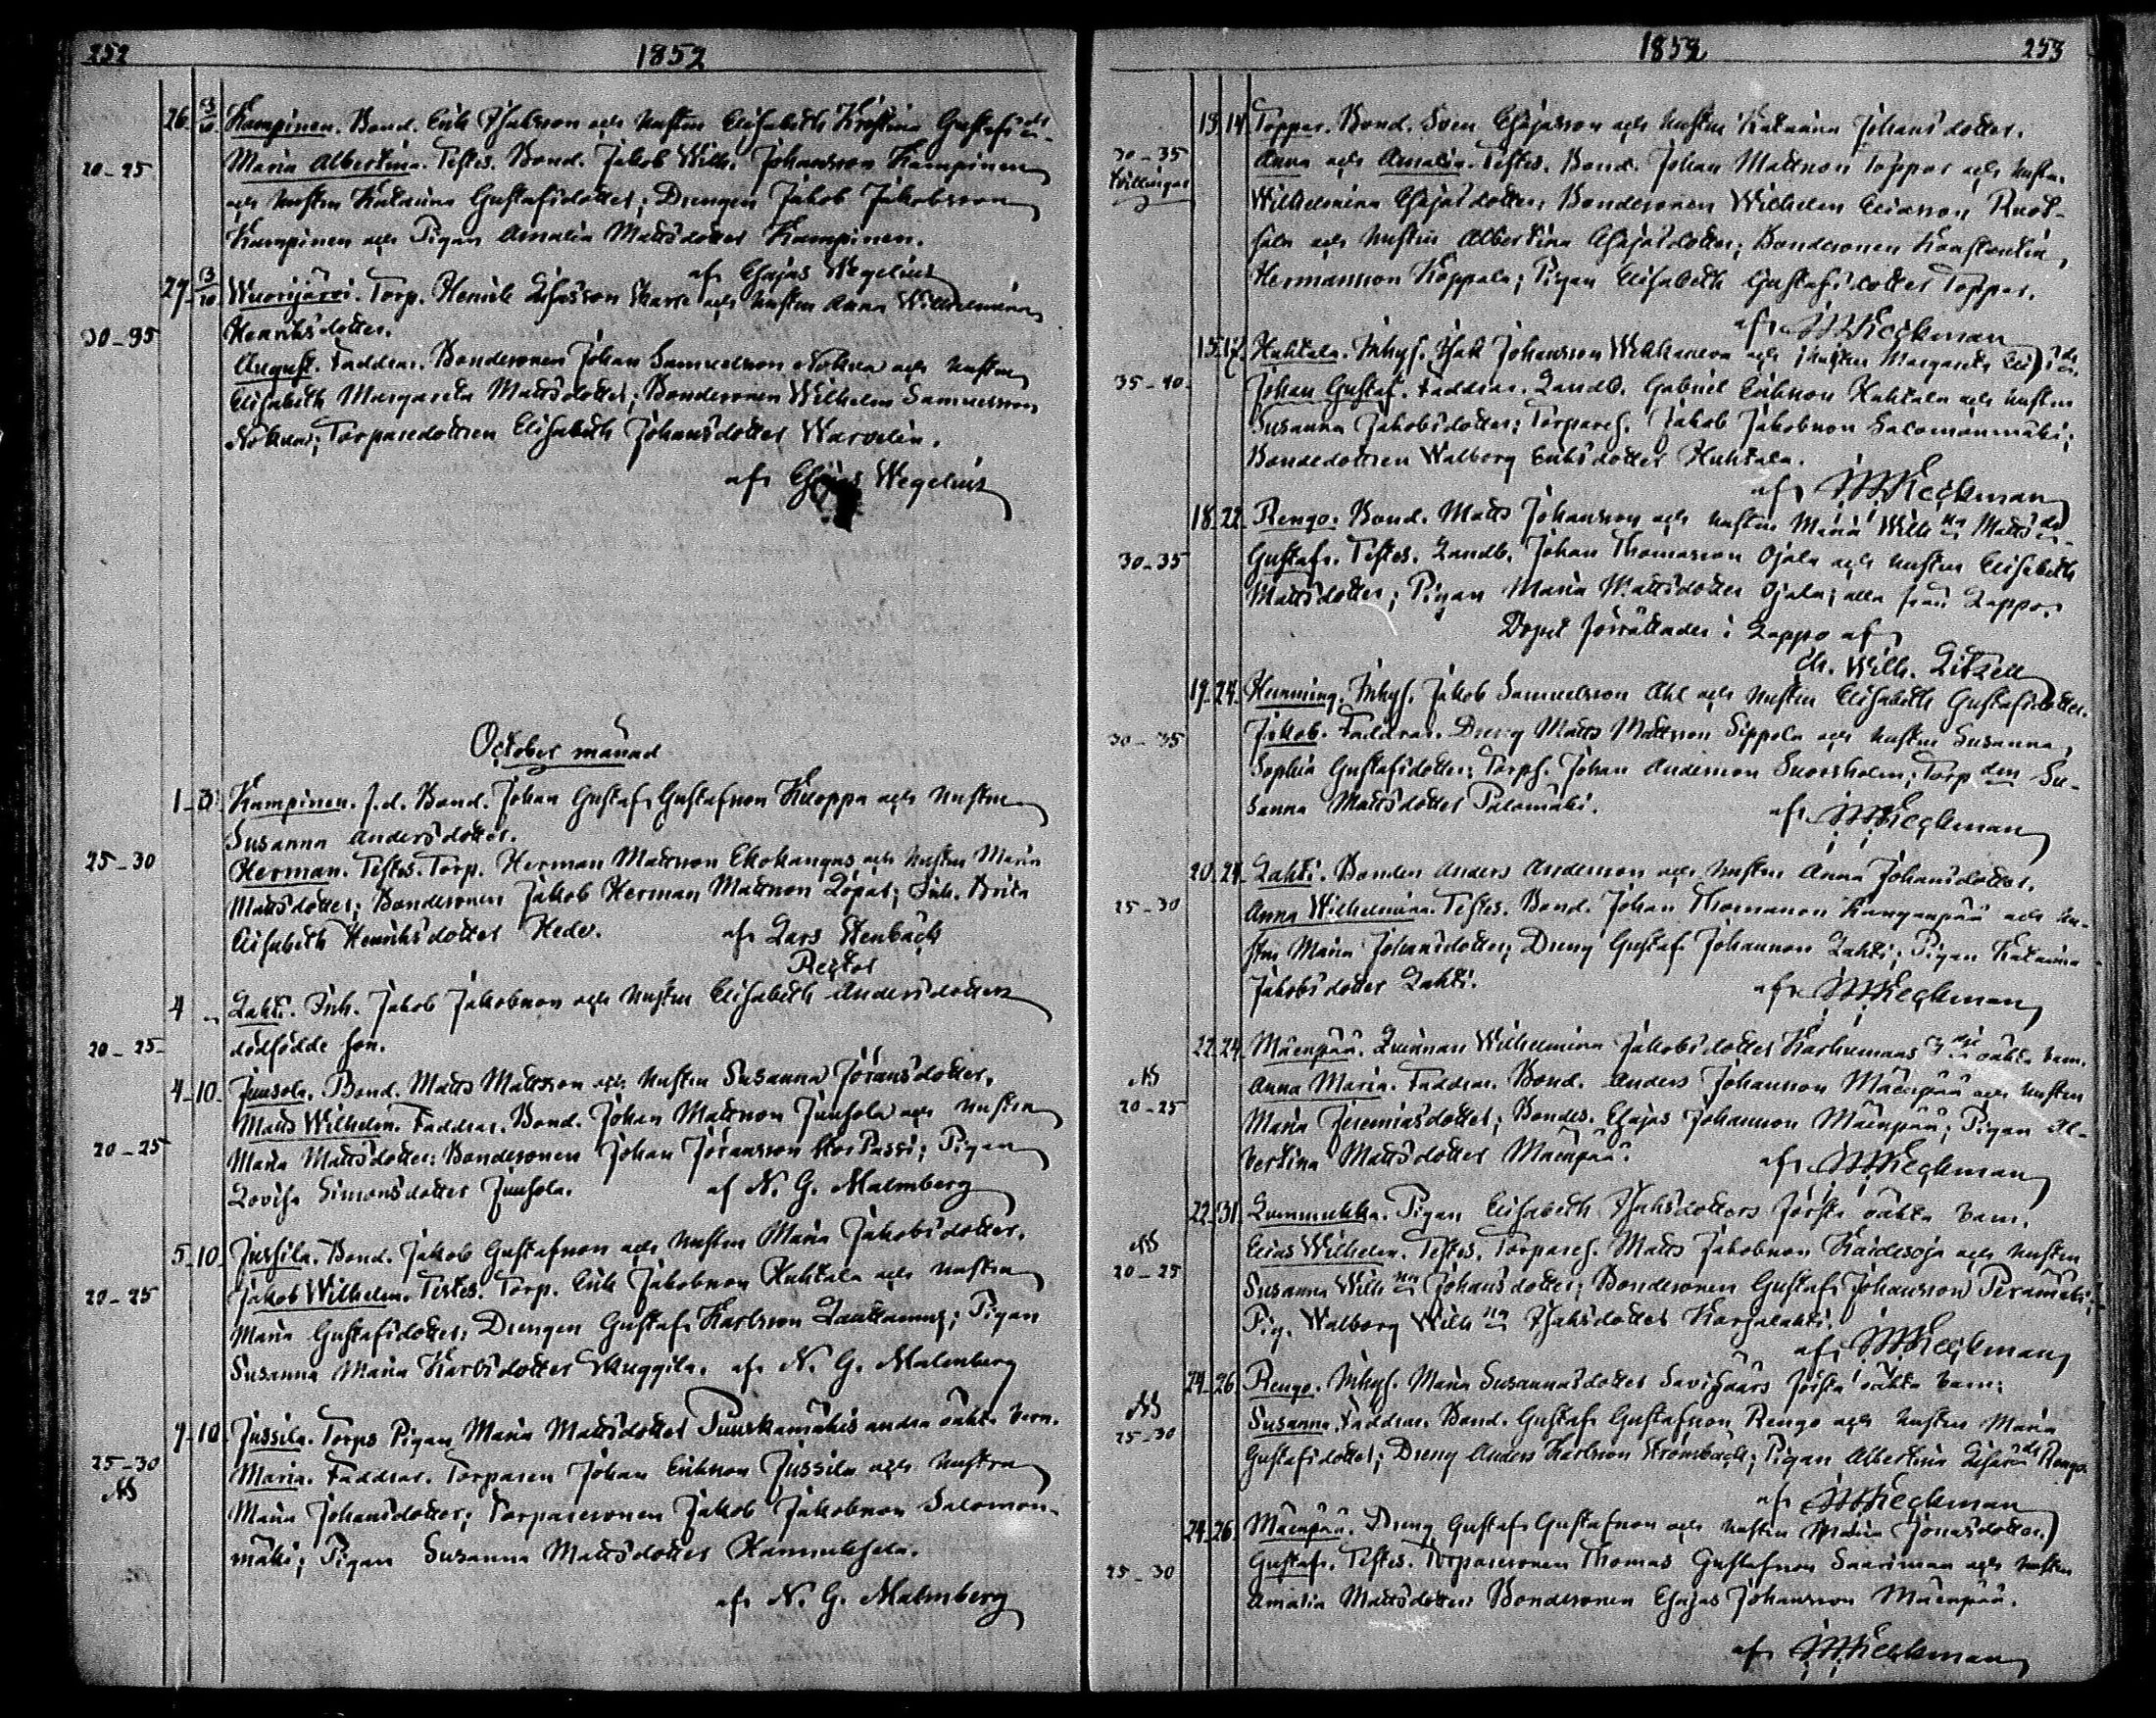 252
1852
26. 3/10. Kampinen. Bond. Erik Isaksson och hustru Elisabeth Kristina Gustafsdr.
20-25 Maria Albertina. Testes. Bond. Jakob Wilh. Johansson Kampinen
och hustru Katarina Gustafsdotter; Drengen Jakob Jakobsson
Kampinen och Pigan Amalia Mattsdotter Kampinen.
af Esajas Wegelius
27. 3/10 Wuorijärvi. Torp. Henrik Esajasson och hustru Anna Wilhelmina
30-35 Henriksdotter.
August. Faddrar. Bondesonen Johan Samuelsson Nokua och hustru
Elisabeth Margareta Mattsdotter; Bondesonen Wilhelm Samuelsson
Nokua; Torparedottren Elisabeth Johansdotter Warvelin.
af Esajas Wegelius
October månad
1-3 Kampinen. f.d. Bond. Johan Gustaf Gustafsson Kuoppa och hustru
Susanna Andersdotter.
25-30 Herman. Testes. Torp. Herman Mattsson Ekokangas och hustru Maria
Mattsdotter; Bondesonen Jakob Herman Mattsson Löpat; Inh. Brita
Elisabeth Henriksdotter Hede. af Lars Stenbäck
Rector
4 Lahti. Inh. Jakob Jakobsson och hustru Elisabeth Andersdotters
20-25 dödfödde son.
4-10. Junsola. Bond. Matts Mattsson och hustru Susanna Göransdotter.
Matts Wilhelm. Faddrar. Bond. Johan Mattsson Junsola och hustru
20-25 Maria Mattsdotter; Bondesonen Johan Göransson Passi; Pigan
Lovisa Simonsdotter Junsola. af N. G. Malmberg
5-10. Jussila. Bond. Jakob Gustafsson och hustru Maria Jakobsdotter.
20-25 Jakob Wilhelm. Testes. Torp. Erik Jakobsson Huhtala och hustru
Maria Gustafsdotter; Drengen Gustaf Karlsson Lauttamus; Pigan
Susanna Maria Karlsdotter. af N. G. Malmberg
9-10. Jussila. Torps Pigan Maria Mattsdotter Puuskamäkis andra oäkta barn.
25-30 Maria. Faddrar. Torparen Johan Eriksson Jussila och hustru
NB
Maria Johansdotter; Torparesonen Jakob Jakobsson Salomon-
mäki; Pigan Susanna Mattsdotter Hannuksela.
af N. G. Malmberg
1852
253
13. 14. Toppar. Bond. Sven Esajasson och hustru Katarina Johansdotter.
30-35 Anna och Amalia. Testes. Bond. Johan Mattsson Toppar och hustru
tvillingar
Wilhelmina Esajasdotter; Bondesonen Wilhelm Eliasson Ruot-
sala och hustru Albertina Esajasdotter; Bondesonen Konstantin
Hermansson Koppala; Pigan Elisabeth Gustafsdotter Toppar.
af Keckman
15. 17. Huhtala. Inhys. Isak Johansson och hustru Margareta
35-40. Johan Gustaf. Faddrar. Landb. Gabriel Eriksson Huhtala och hustru
Susanna Jakobsdotter; Torpares. Jakob Jakobsson Salomonmäki;
Bondedottren Walborg Eriksdotter Huhtala.
af Keckman
18. 22. Rengo. Bond. Matts Johansson och hustru Maria Wilhna Mattsdr.
30-35 Gustaf. Testes. Landb. Johan Thomasson Ojala och hustru Elisabeth
Mattsdotter; Pigan Maria Mattsdotter Ojala; alla från Lappo.
Dopet förrättades i Lappo af
Ch. Wilh. Litzell
19. 24. Hemming. Inhys. Jakob Samuelsson Ahl och hustru Elisabeth Gustafsdotter.
30-35 Jakob. Faddrar. Dreng Matts Mattsson Sippola och hustru Susanna
Sophia Gustafsdotter; Torps. Johan Andersson Snorsholm; Torp den Su-
sanna Mattsdotter Palomäki. af Keckman
20. 24. Lahti. Bonden Anders Andersson och hustru Anna Johansdotter.
25-30 Anna Wilhelmina. Testes. Bond. Johan Thomasson Kangaspää och hu-
stru Maria Johansdotter; Dreng Gustaf Johansson Lahti; Pigan Katarina
Jakobsdotter Lahti. af Keckman
22. 24. Mäenpää. Qvinnan Wilhelmina Jakobsdotter Karhumaas oäkta barn.
NB
20-25 Anna Maria. Faddrar. Bond. Anders Johansson Mäenpää och hustru
Maria Jeremiasdotter; Bondes. Esajas Johansson Mäenpää; Pigan Al-
bertina Mattsdotter Mäenpää. af Keckman
22. 31. Lummukka. Pigan Elisabeth Isaksdotters första oäkta barn.
NB
20-25 Elias Wilhelm. Testes. Torpares. Matts Jakobsson Kaidesoja och hustru
Susanna Wilhna Johansdotter; Bondesonen Gustaf Johansson Perämäki;
Pig. Walborg Wilhna Isaksdotter Karjalahti.
af Keckman
24. 26. Rengo. Inhys. Maria Susannasdotter Savisaars första oäkta barn.
NB
25-30 Susanna. Faddrar. Bond. Gustaf Gustafsson Rengo och hustru Maria
Gustafsdotter; Dreng Anders Karlsson Strömbäck; Pigan Albertina Rengo.
af Keckman
24. 26. Mäenpää. Dreng Gustaf Gustafsson och hustru Maria Jonasdotter.
25-30 Gustaf. Testes. Torparesonen Thomas Gustafsson Saarimaa och hustru
Amalia Mattsdotter; Bondesonen Esajas Johansson Mäenpää.
af Keckman